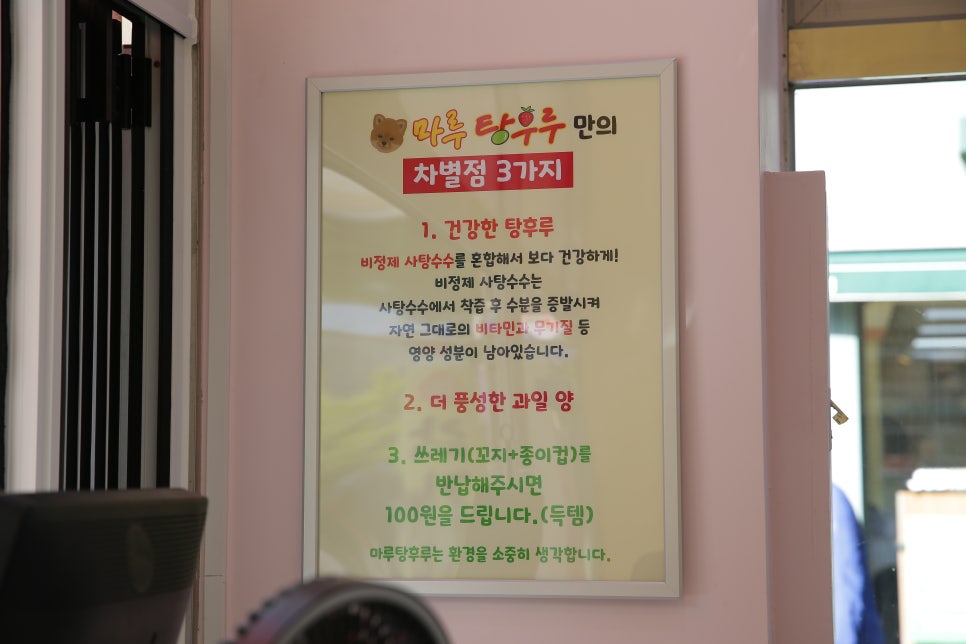 마루 탕후루만의
차별점 3가지
1. 건강한 탕후루
비정제 사탕수수를 혼합해서 보다 건강하게!
비정제 사탕수수는
사탕수수에서 착즙 후 수분을 증발시켜
자연 그대로의 비타민과 무기질 등
영양 성분이 남아있습니다.
2. 더 풍성한 과일 양
3. 쓰레기(꼬지+종이컵)를
반납해주시면
100원을 드립니다.(득템)
마루탕후루는 환경을 소중히 생각합니다.